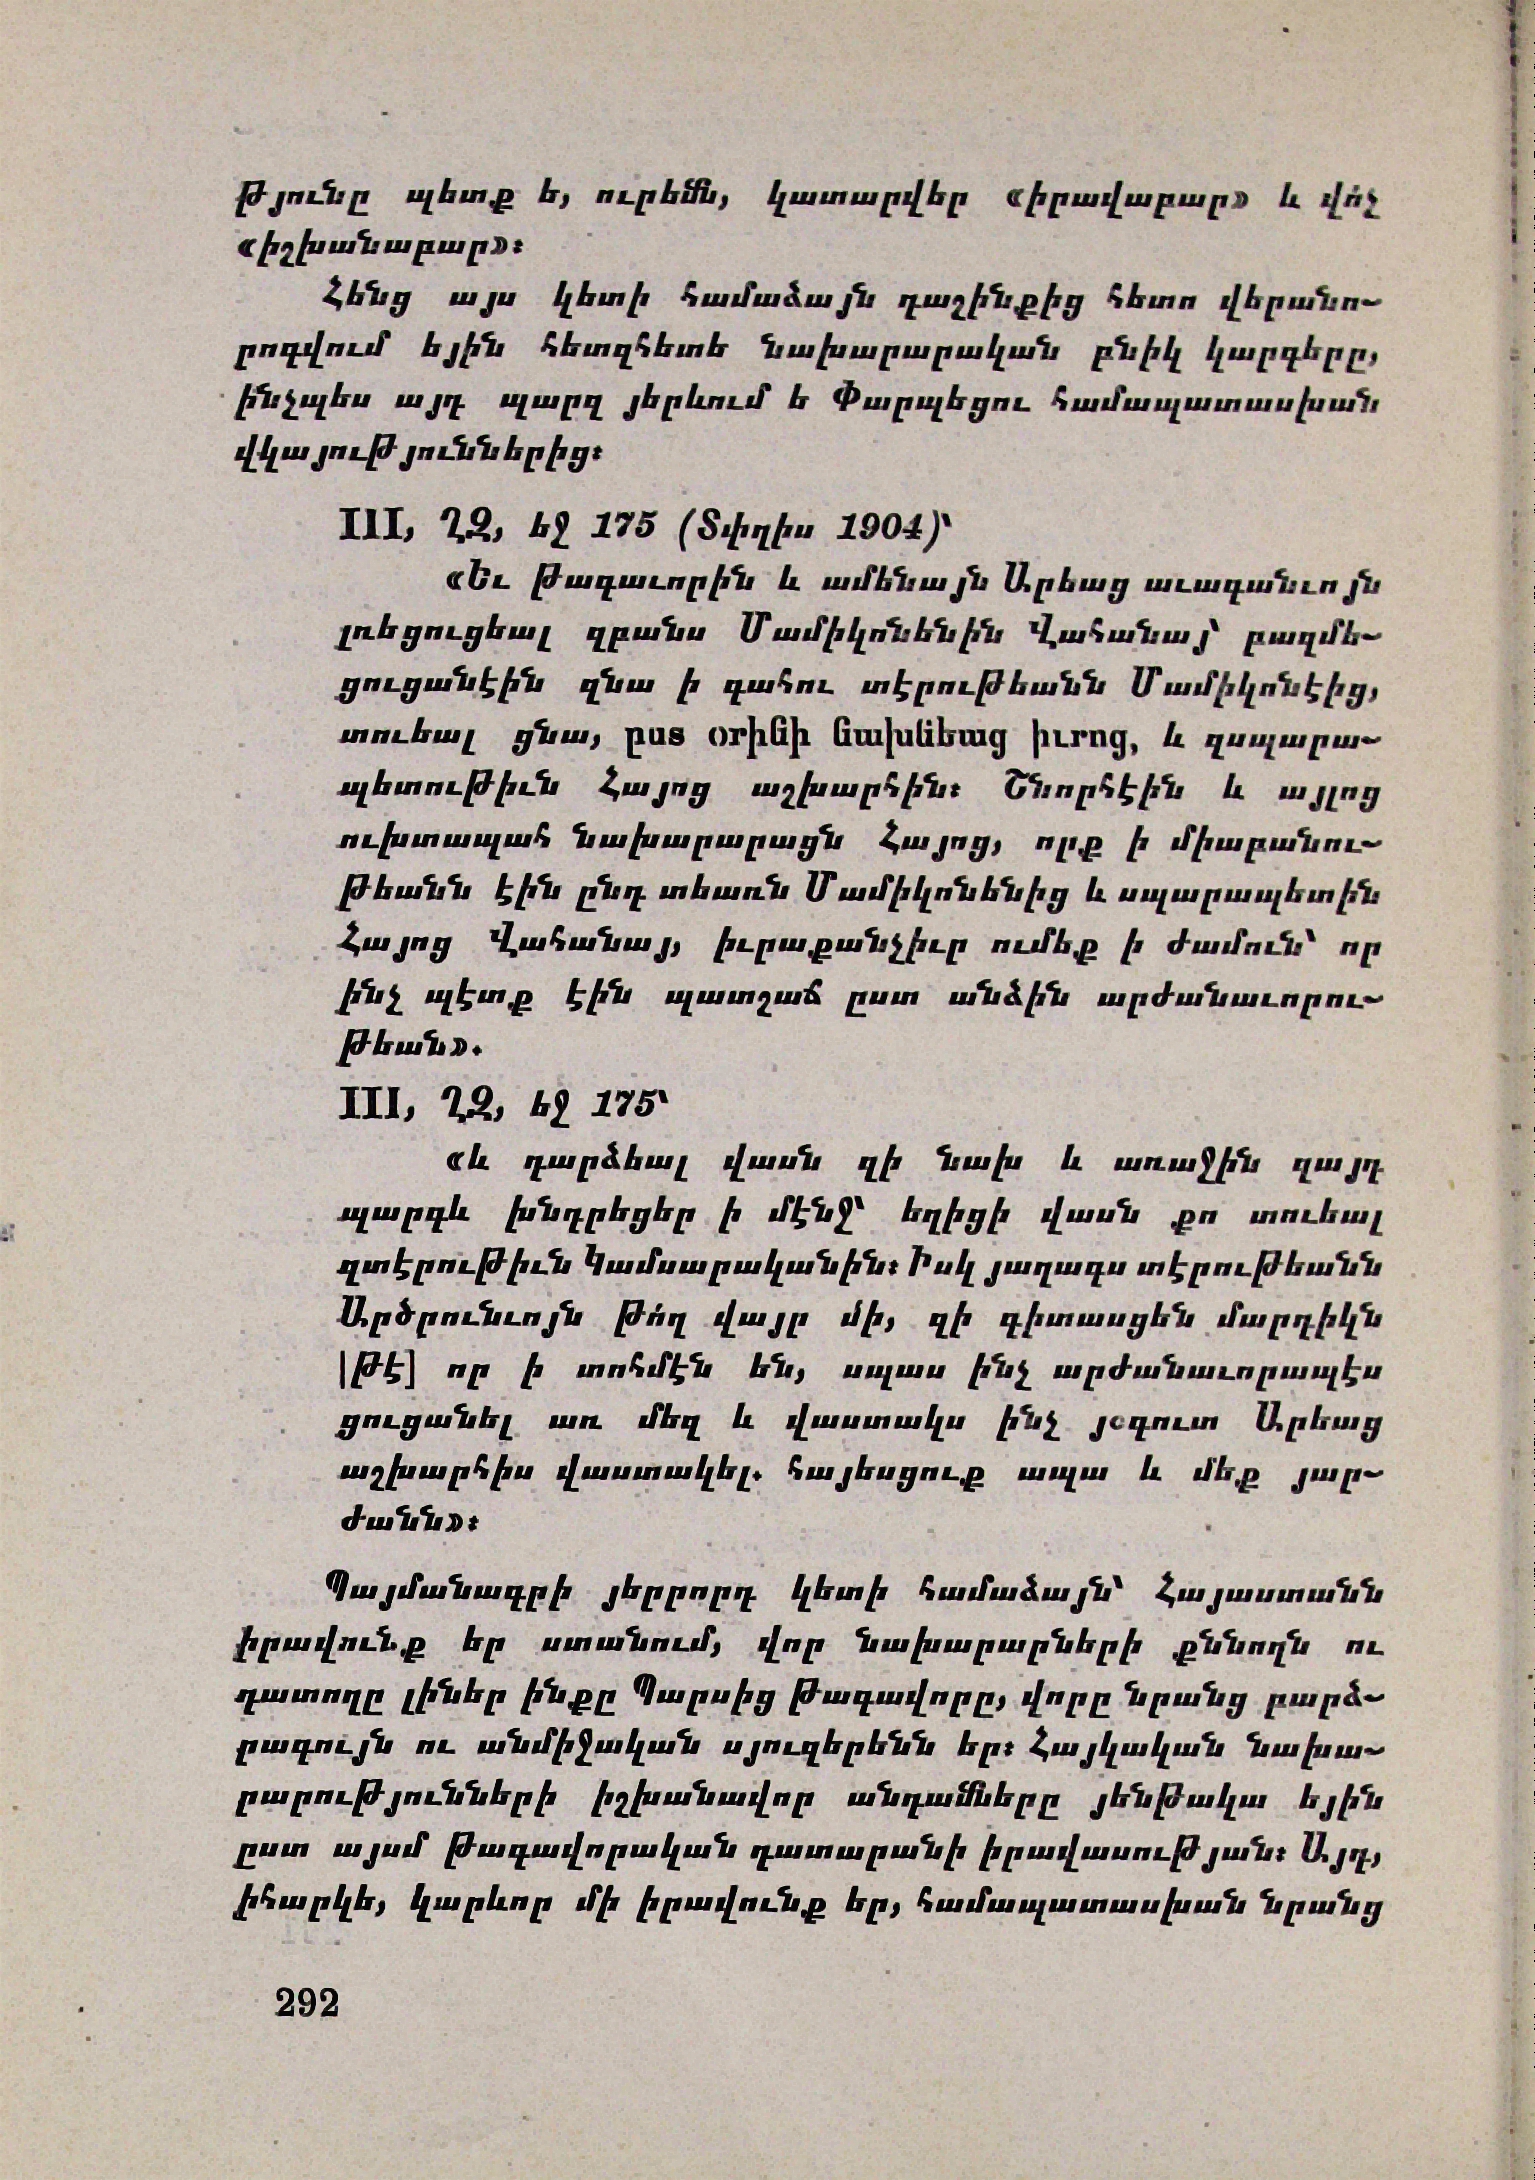 թյունը պետք ե, ուրեմն, կատարվեր «իրավաբար» և վո՛չ
«իշխանաբար»։
Հենց այս կետի համաձայն դաշինքից հետո վերանո-
րոգվում եյին հետզհետե նախարարական բնիկ կարգերը,
ինչպես այդ պարզ յերևում ե Փարպեցու համապատասխան
վկայություններից։
III, ՂԶ, եջ 175 (Տփղիս 1904)՝
«Եւ թագաւորին և ամենայն Արեաց աւագանւոյն
լռեցուցեալ զբանս Մամիկոնենին Վահանայ՝ բազմե-
ցուցանէին զնա ի գահու տէրութեանն Մամիկոնէից,
տուեալ ցնա, ըստ օրինի նախնեաց իւրոց, և զսպարա-
պետութիւն Հայոց աշխարհին։ Շնորհէին և այլոց
ուխտապահ նախարարացն Հայոց, որք ի միաբանու-
թեանն էին ընդ տեառն Մամիկոնենից և սպարապետին
Հայոց Վահանայ, իւրաքանչիւր ումեք ի ժամուն՝ որ
ինչ պէտք էին պատշաճ ըստ անձին արժանաւորու-
թեան».
III, ՂԶ, եջ 175՝
«և դարձեալ վասն զի նախ և առաջին զայդ
պարգև խնդրեցեր ի մէնջ՝ եղիցի վասն քո տուեալ
զտէրութիւն Կամսարականին։ Իսկ յաղագս տէրութեանն
Արծրունւոյն թո՛ղ վայր մի, զի գիտասցեն մարդիկն
[թէ] որ ի տոհմէն են, սպաս ինչ արժանաւորապէս
ցուցանել առ մեզ և վաստակս ինչ յօգուտ Արեաց
աշխարհիս վաստակել. հայեսցուք ապա և մեք յար-
ժանն»։
Պայմանագրի յերրորդ կետի համաձայն՝ Հայաստանն
իրավունք եր ստանում, վոր նախարարների քննողն ու
դատողը լիներ ինքը Պարսից թագավորը, վորը նրանց բարձ-
րագույն ու անմիջական սյուզերենն եր։ Հայկական նախա-
րարությունների իշխանավոր անդամները յենթակա եյին
ըստ այսմ թագավորական դատարանի իրավասության։ Այդ,
իհարկե, կարևոր մի իրավունք եր, համապատասխան նրանց
292